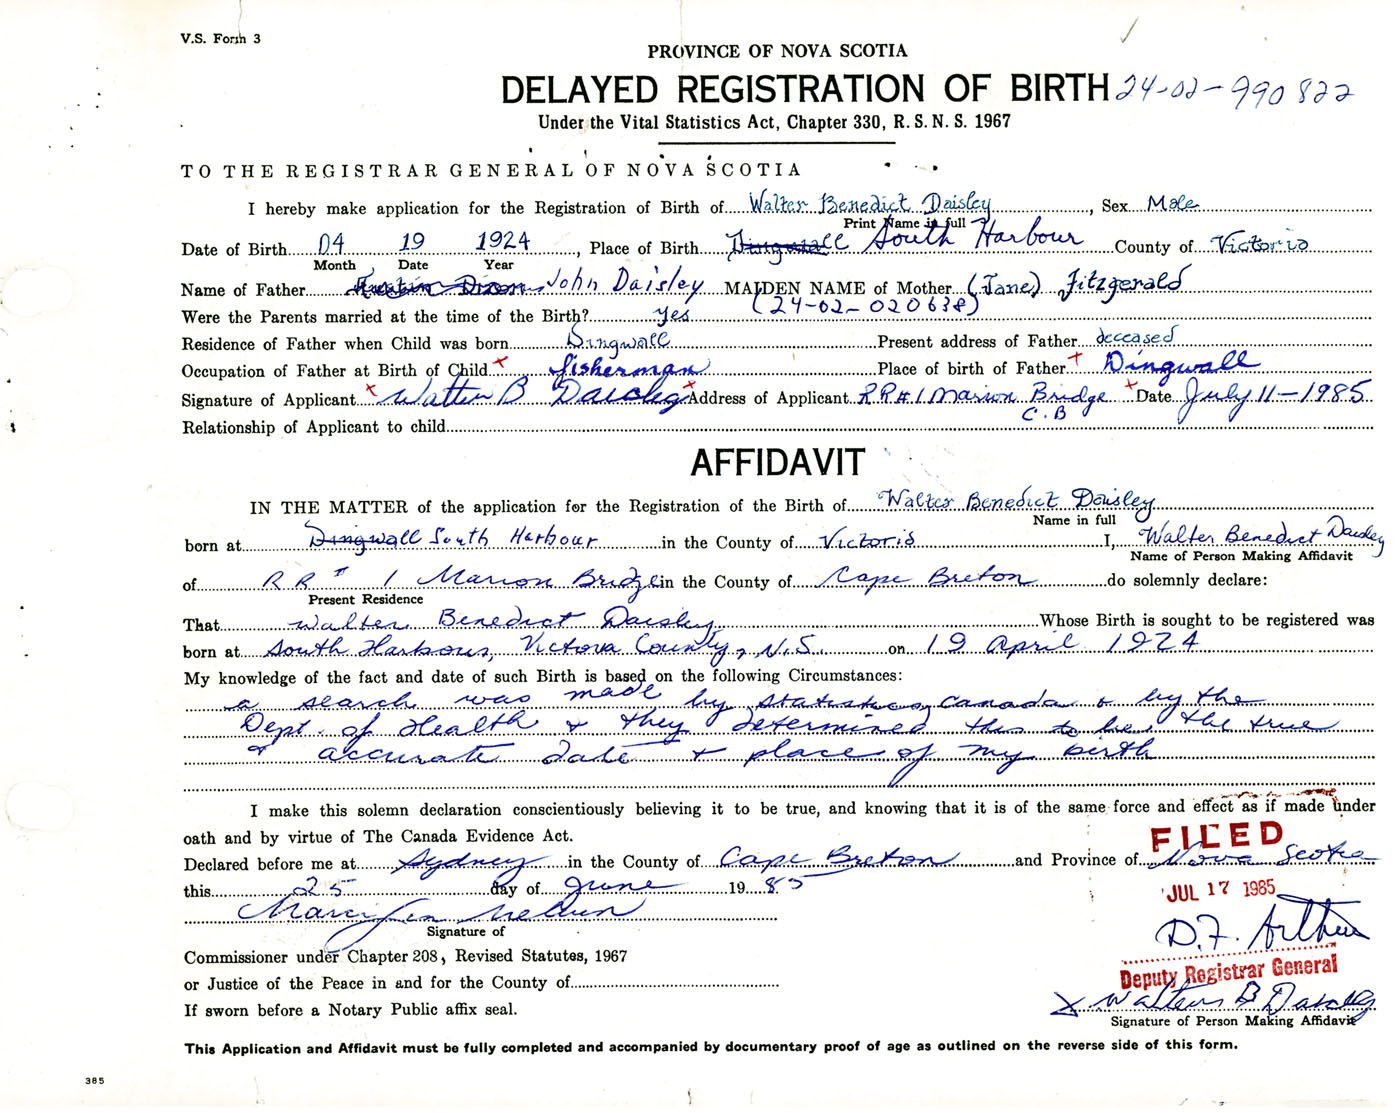 V.S. Form 3
PROVINCE OF NOVA SCOTIA
DELAYED REGISTRATION OF BIRTH 24-02-990822
Under the Vital Statistics Act, Chapter 330, R.S.N.S. 1967
TO THE REGISTRAR GENERAL OF NOVA SCOTIA
I hereby make application for the Registration of Birth of Walter Benedict Daisley, Sex Male
Print Name in full
Date of Birth 04 19 1924, Place of Birth Dingwall South Harbour County of Victoria
Month Date Year
Name of Father Dixon John Daisley MAIDEN NAME of Mother (Jane) Fitzgerald
Were the Parents married at the time of the Birth? yes (24-02-020638)
Residence of Father when Child was born Dingwall Present address of Father deceased
Occupation of Father at Birth of Child x fisherman Place of birth of Father x Dingwall
Signature of Applicant x Walter B Daisley x Address of Applicant RR#1 Marion Bridge x Date July 11-1985
C.B
Relationship of Applicant to child
AFFIDAVIT
IN THE MATTER of the application for the Registration of the Birth of Walter Benedict Daisley
Name in full
born at Dingwall South Harbour in the County of Victoria I, Walter Benedict Daisley
Name of Person Making Affidavit
of RR # 1 Marion Bridge in the County of Cape Breton do solemnly declare:
Present Residence
That Walter Benedict Daisley Whose Birth is sought to be registered was
born at South Harbour, Victoria County, N.S. on 19 April 1924
My knowledge of the fact and date of such Birth is based on the following Circumstances:
a search was made by Statistics Canada & by the
Dept. of Health & they determined this to be the true
& accurate date & place of my birth
I make this solemn declaration conscientiously believing it to be true, and knowing that it is of the same force and effect as if made under
oath and by virtue of The Canada Evidence Act.
FILED
Declared before me at Sydney in the County of Cape Breton and Province of Nova Scotia
this 25 day of June 1985
JUL 17 1985
Signature of
D.F. Arthur
Commissioner under Chapter 208, Revised Statutes, 1967
Deputy Registrar General
or Justice of the Peace in and for the County of
x Walter B Daisley
If sworn before a Notary Public affix seal.
Signature of Person Making Affidavit
This Application and Affidavit must be fully completed and accompanied by documentary proof of age as outlined on the reverse side of this form.
385